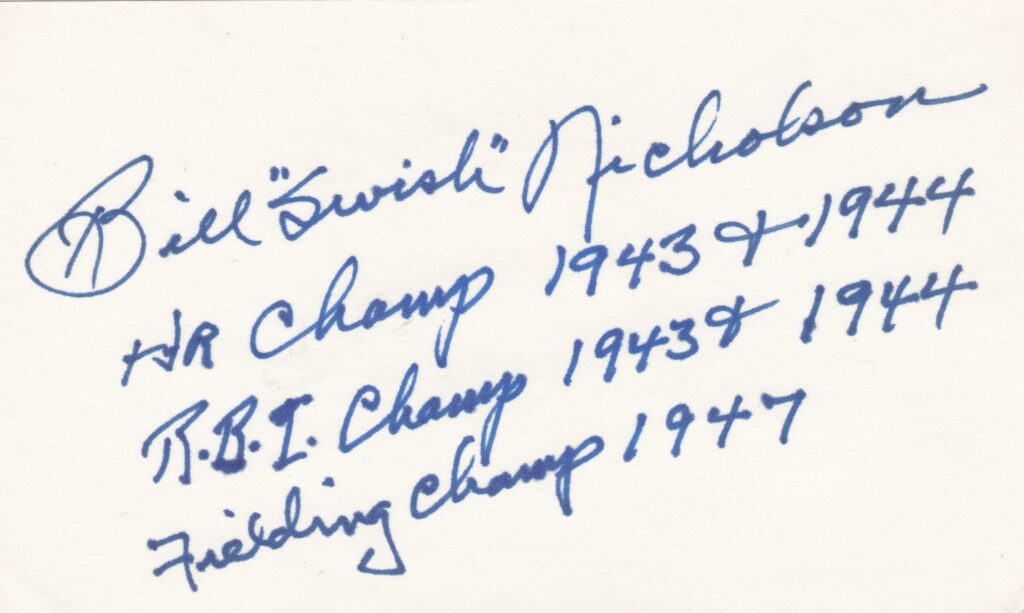 Bill "Swish" Nicholson
HR Champ 1943 & 1944
R.B.I. Champ 1943 & 1944
Fielding Champ 1947